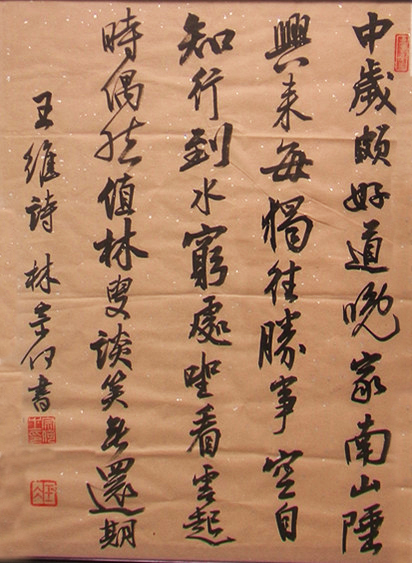 中歲頗好道晚家南山陲
興来每獨往勝事空自
知行到水窮處坐看雲起
時偶然值林叟談笑無還期
王維詩 林宗何書